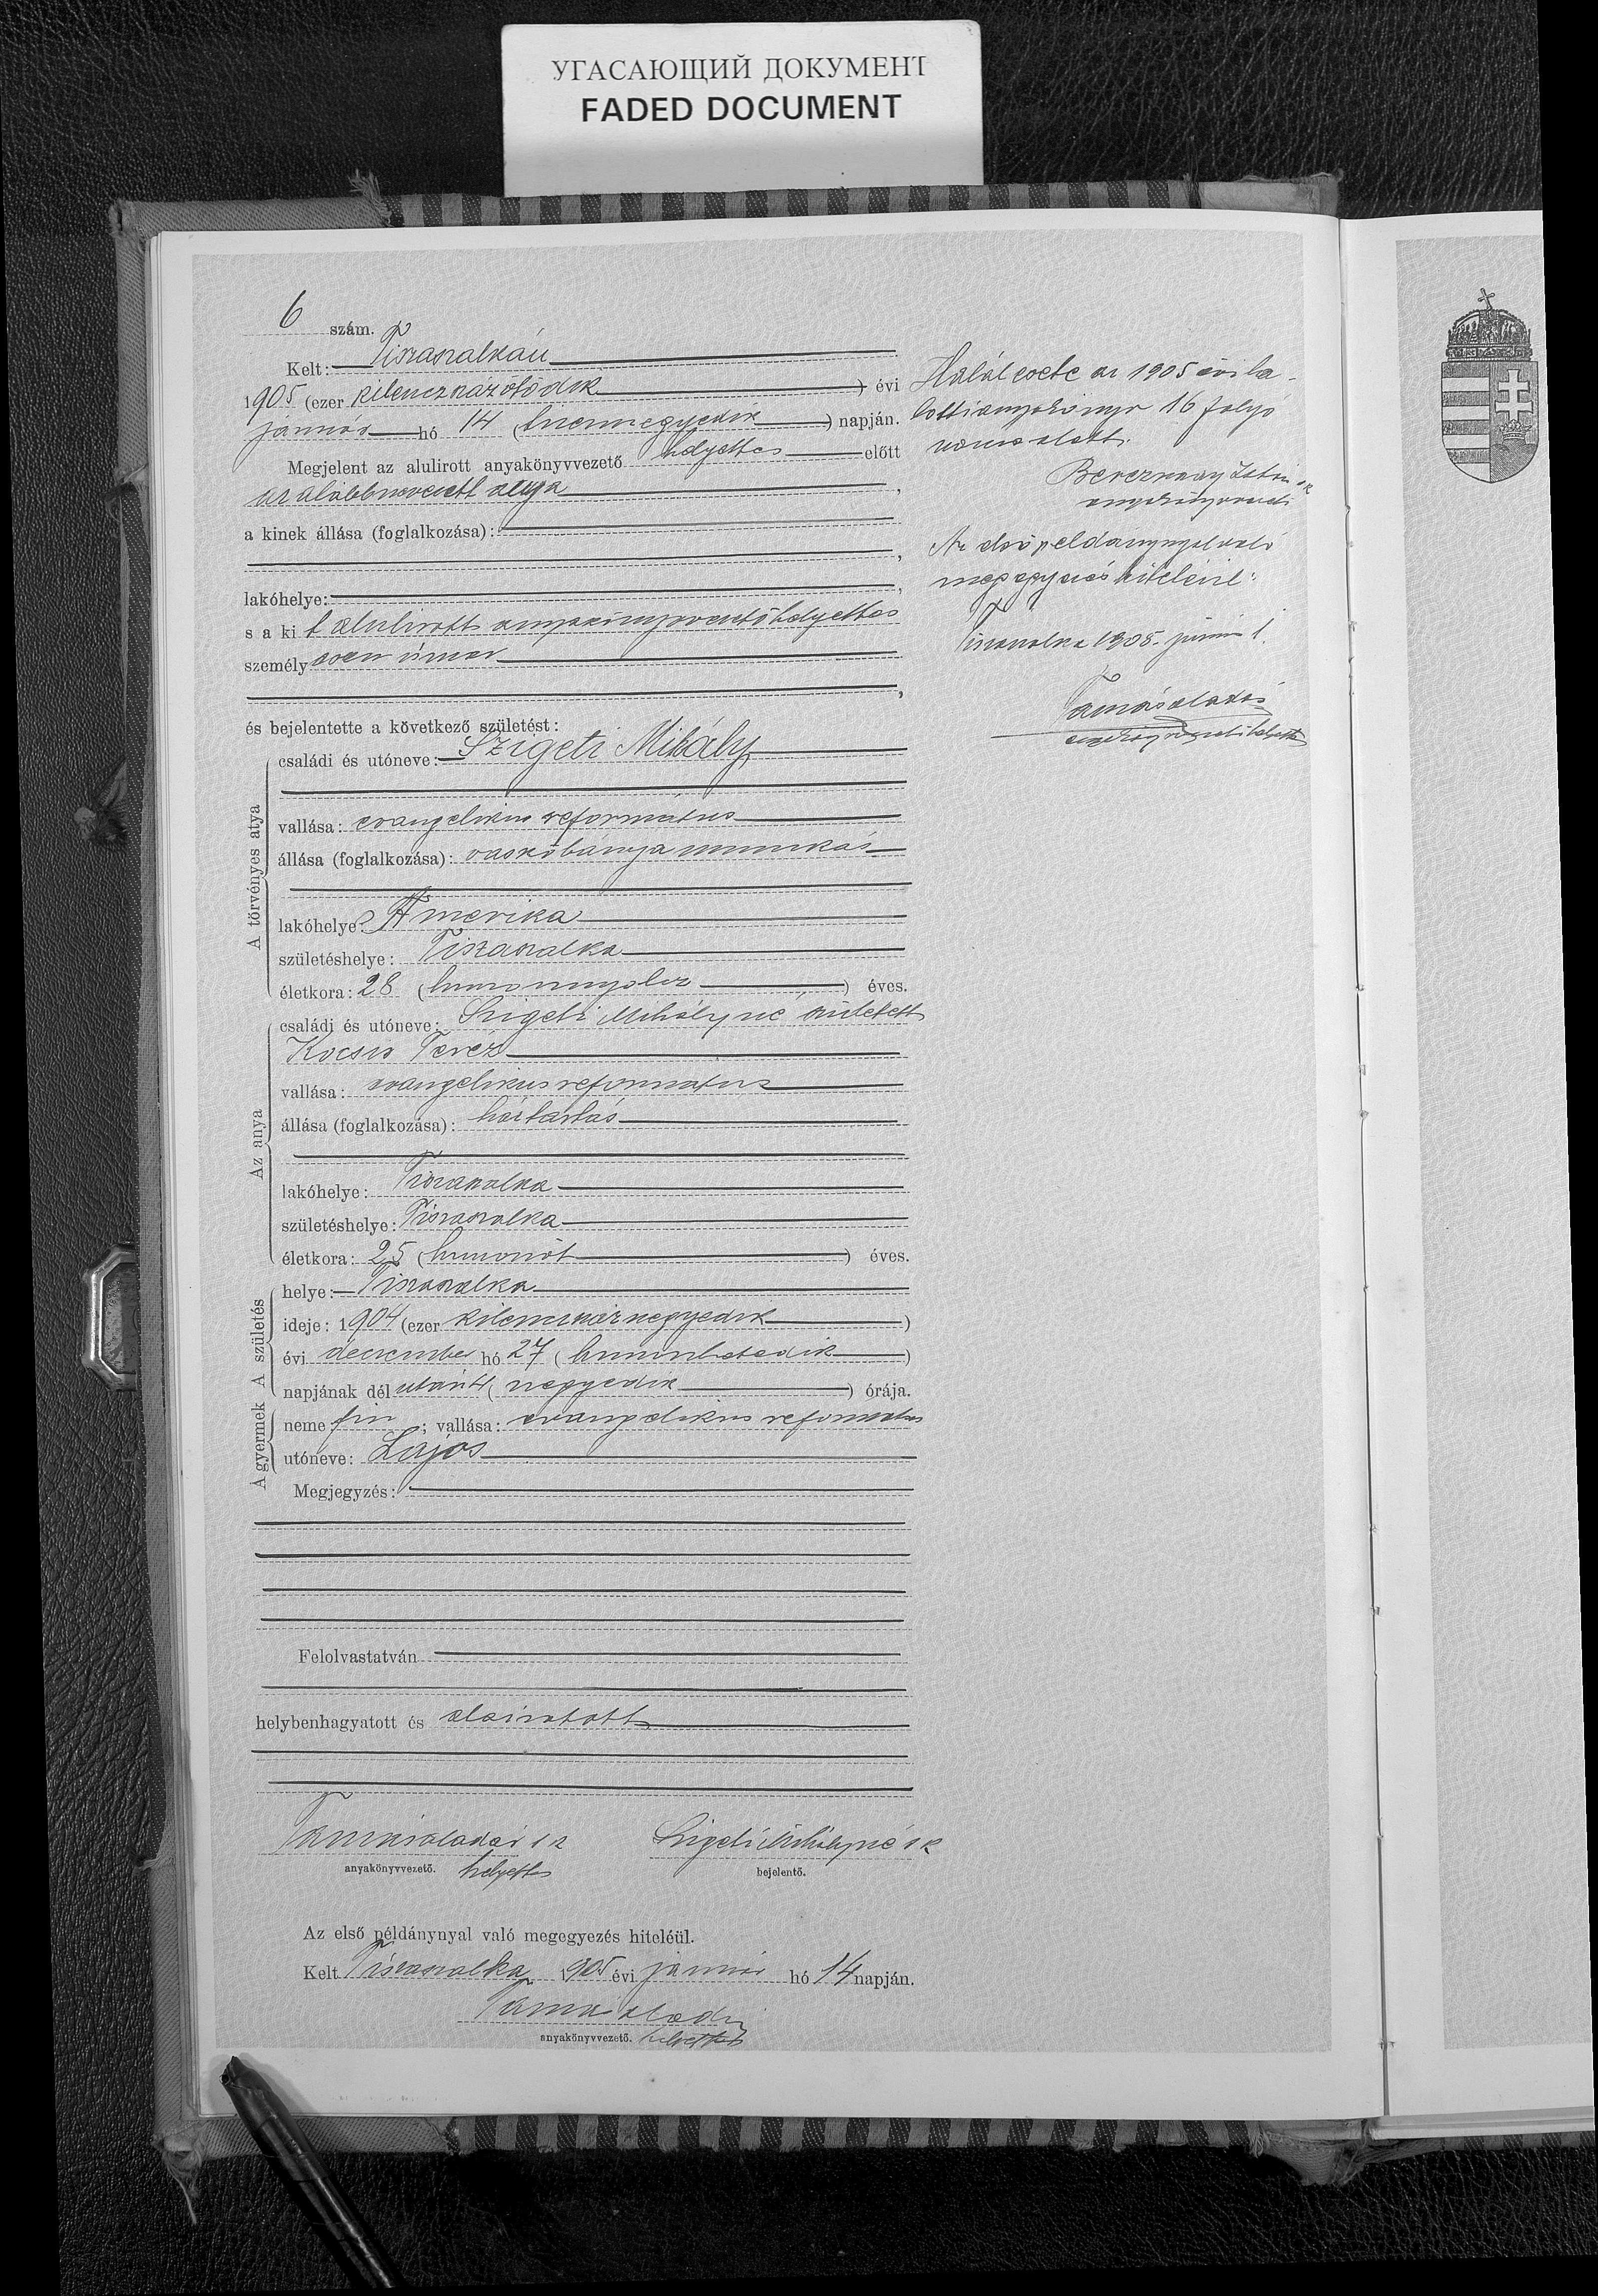 УГАСАЮЩИЙ ДОКУМЕНТ
FADED DOCUMENT
6 szám.
Kelt: Tiszaszalkán
1905 (ezer kilenczszázötödik) évi
január hó 14 (tizennegyedik) napján.
Megjelent az alulirott anyakönyvvezető helyettes előtt
az alább nevezett anya,
a kinek állása (foglalkozása):
,
lakóhelye: ,
s a ki t alulirott anyakönyvvezető helyettes
személyesen ismer
,
és bejelentette a következő születést:
A törvényes atya
családi és utóneve: Szigeti Mihály
vallása: evangelikus református
állása (foglalkozása): vaskőbánya munkás
lakóhelye: Amerika
születéshelye: Tiszaszalka
életkora: 28 (huszonnyolcz) éves.
Az anya
családi és utóneve: Szigeti Mihályné született
Kocsis Teréz
vallása: evangelikus református
állása (foglalkozása): háztartás
lakóhelye: Tiszaszalka
születéshelye: Tiszaszalka
életkora: 25 (huszonöt) éves.
A születés
helye: Tiszaszalka
ideje: 1904 (ezer kilenczszáznegyedik)
évi deczember hó 27 (huszonhetedik)
napjának dél után 4 (negyedik) órája.
A gyermek
neme fiu; vallása: evangelikus református
utóneve: Lajos
Megjegyzés:
Felolvastatván
helybenhagyatott és aláiratott
Tamás Aladár s k Szigeti Mihályné s k
anyakönyvvezető. helyettes bejelentő.
Az első példánynyal való megegyezés hiteléül.
Kelt Tiszaszalka 1905 évi január hó 14 napján.
Tamás Aladár
anyakönyvvezető. helyettes
Halálesete az 1905 évi ha-
lotti anyakönyv 16 folyó
szám alatt.
Bereznay István s k
anyakönyvvezető
Az első példánynyal való
megegyezés hiteléül:
Tiszaszalka 1905. június 1.
Tamás Aladár
anyakönyvvezető helyettes